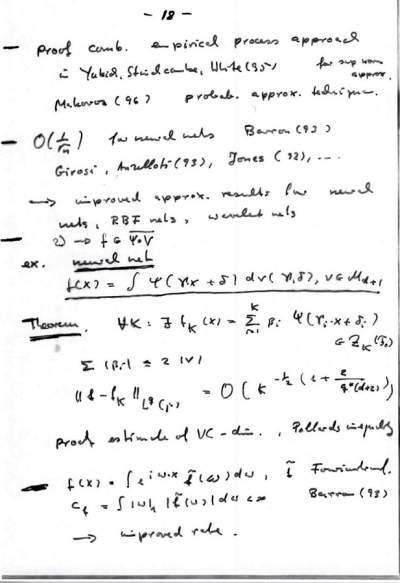 - 18 -
- Proof comb. empirical process approach
in Yukich, Stinchcombe, White (95) for sup norm approx.
Makovoz (96) probab. approx. technique.
- O(1/√n) for neural nets Barron (93)
Girosi, Anzellotti (93), Jones (92), ...
→ improved approx. results for neural
nets, RBF nets, wavelet nets
2) → f ∈
ex. neural net
f(x) = ∫ Ψ(γx + δ) dν(γ,δ), ν ∈ M_{d+1}
Theorem. ∀K: ∃ f_K(x) = Σ_{i=1}^{K} β_i Ψ(γ_i·x + δ_i)
∈ Z_K
Σ |β_i| ≤ 2|ν|
‖f - f_K‖ = O(K^{-1/2 (1 +
Proof estimate of VC-dim., Pollards inequality
- f(x) = ∫ e^{iω·x} f̃(ω) dω, f̃
C_f = ∫ |ω| |f̃(ω)| dω < ∞ Barron (93)
→ improved rate.